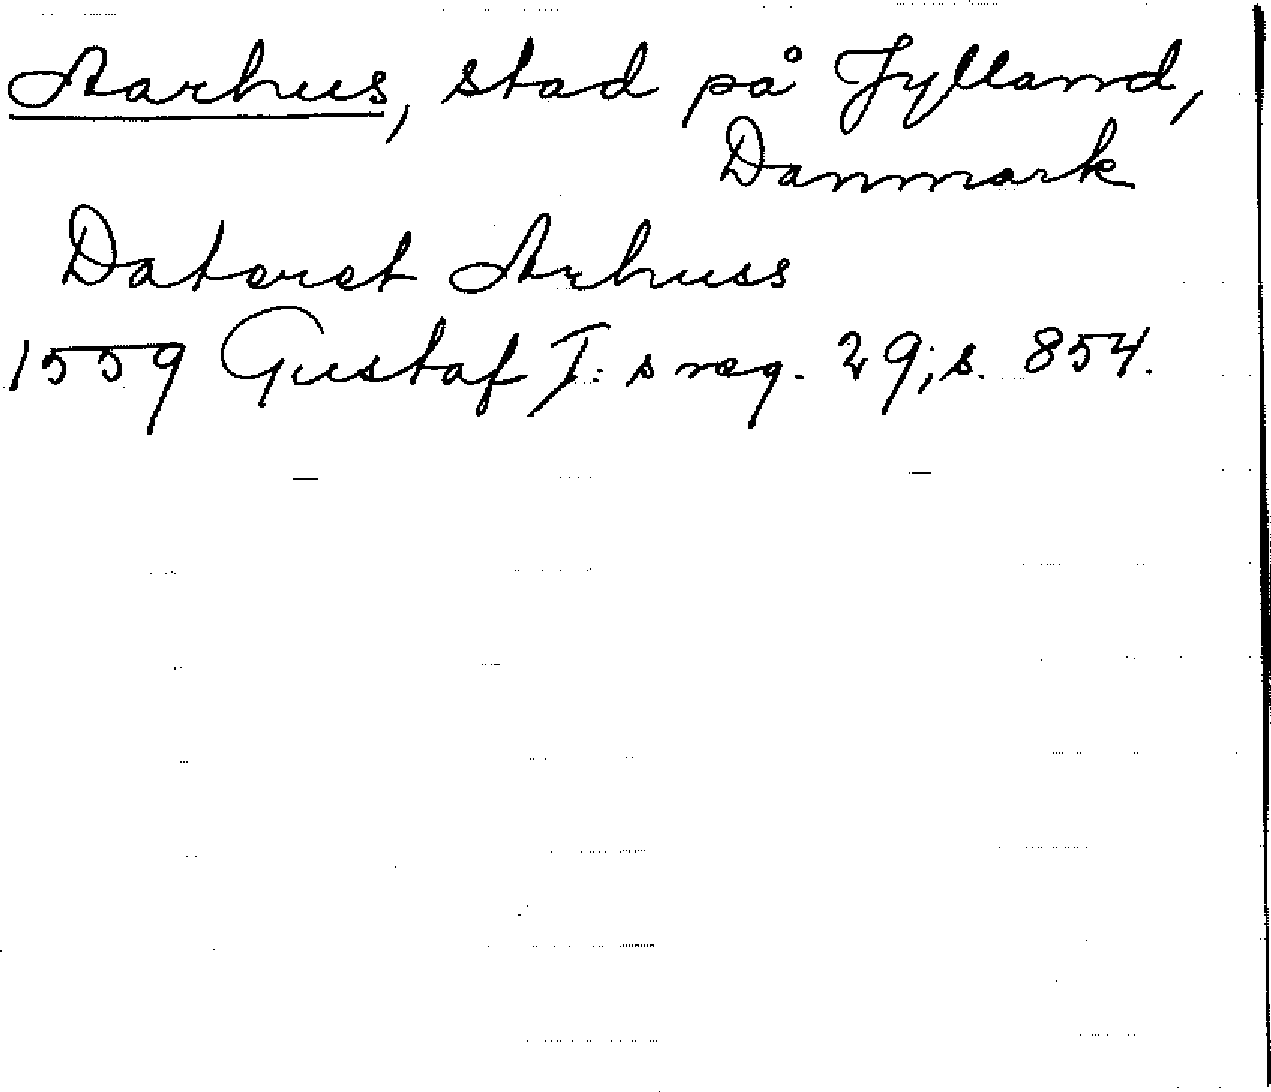 Aarhus, stad på Jylland,
Danmark
Daterat Arhuss
1559 Gustaf I:s reg. 29; s. 854.